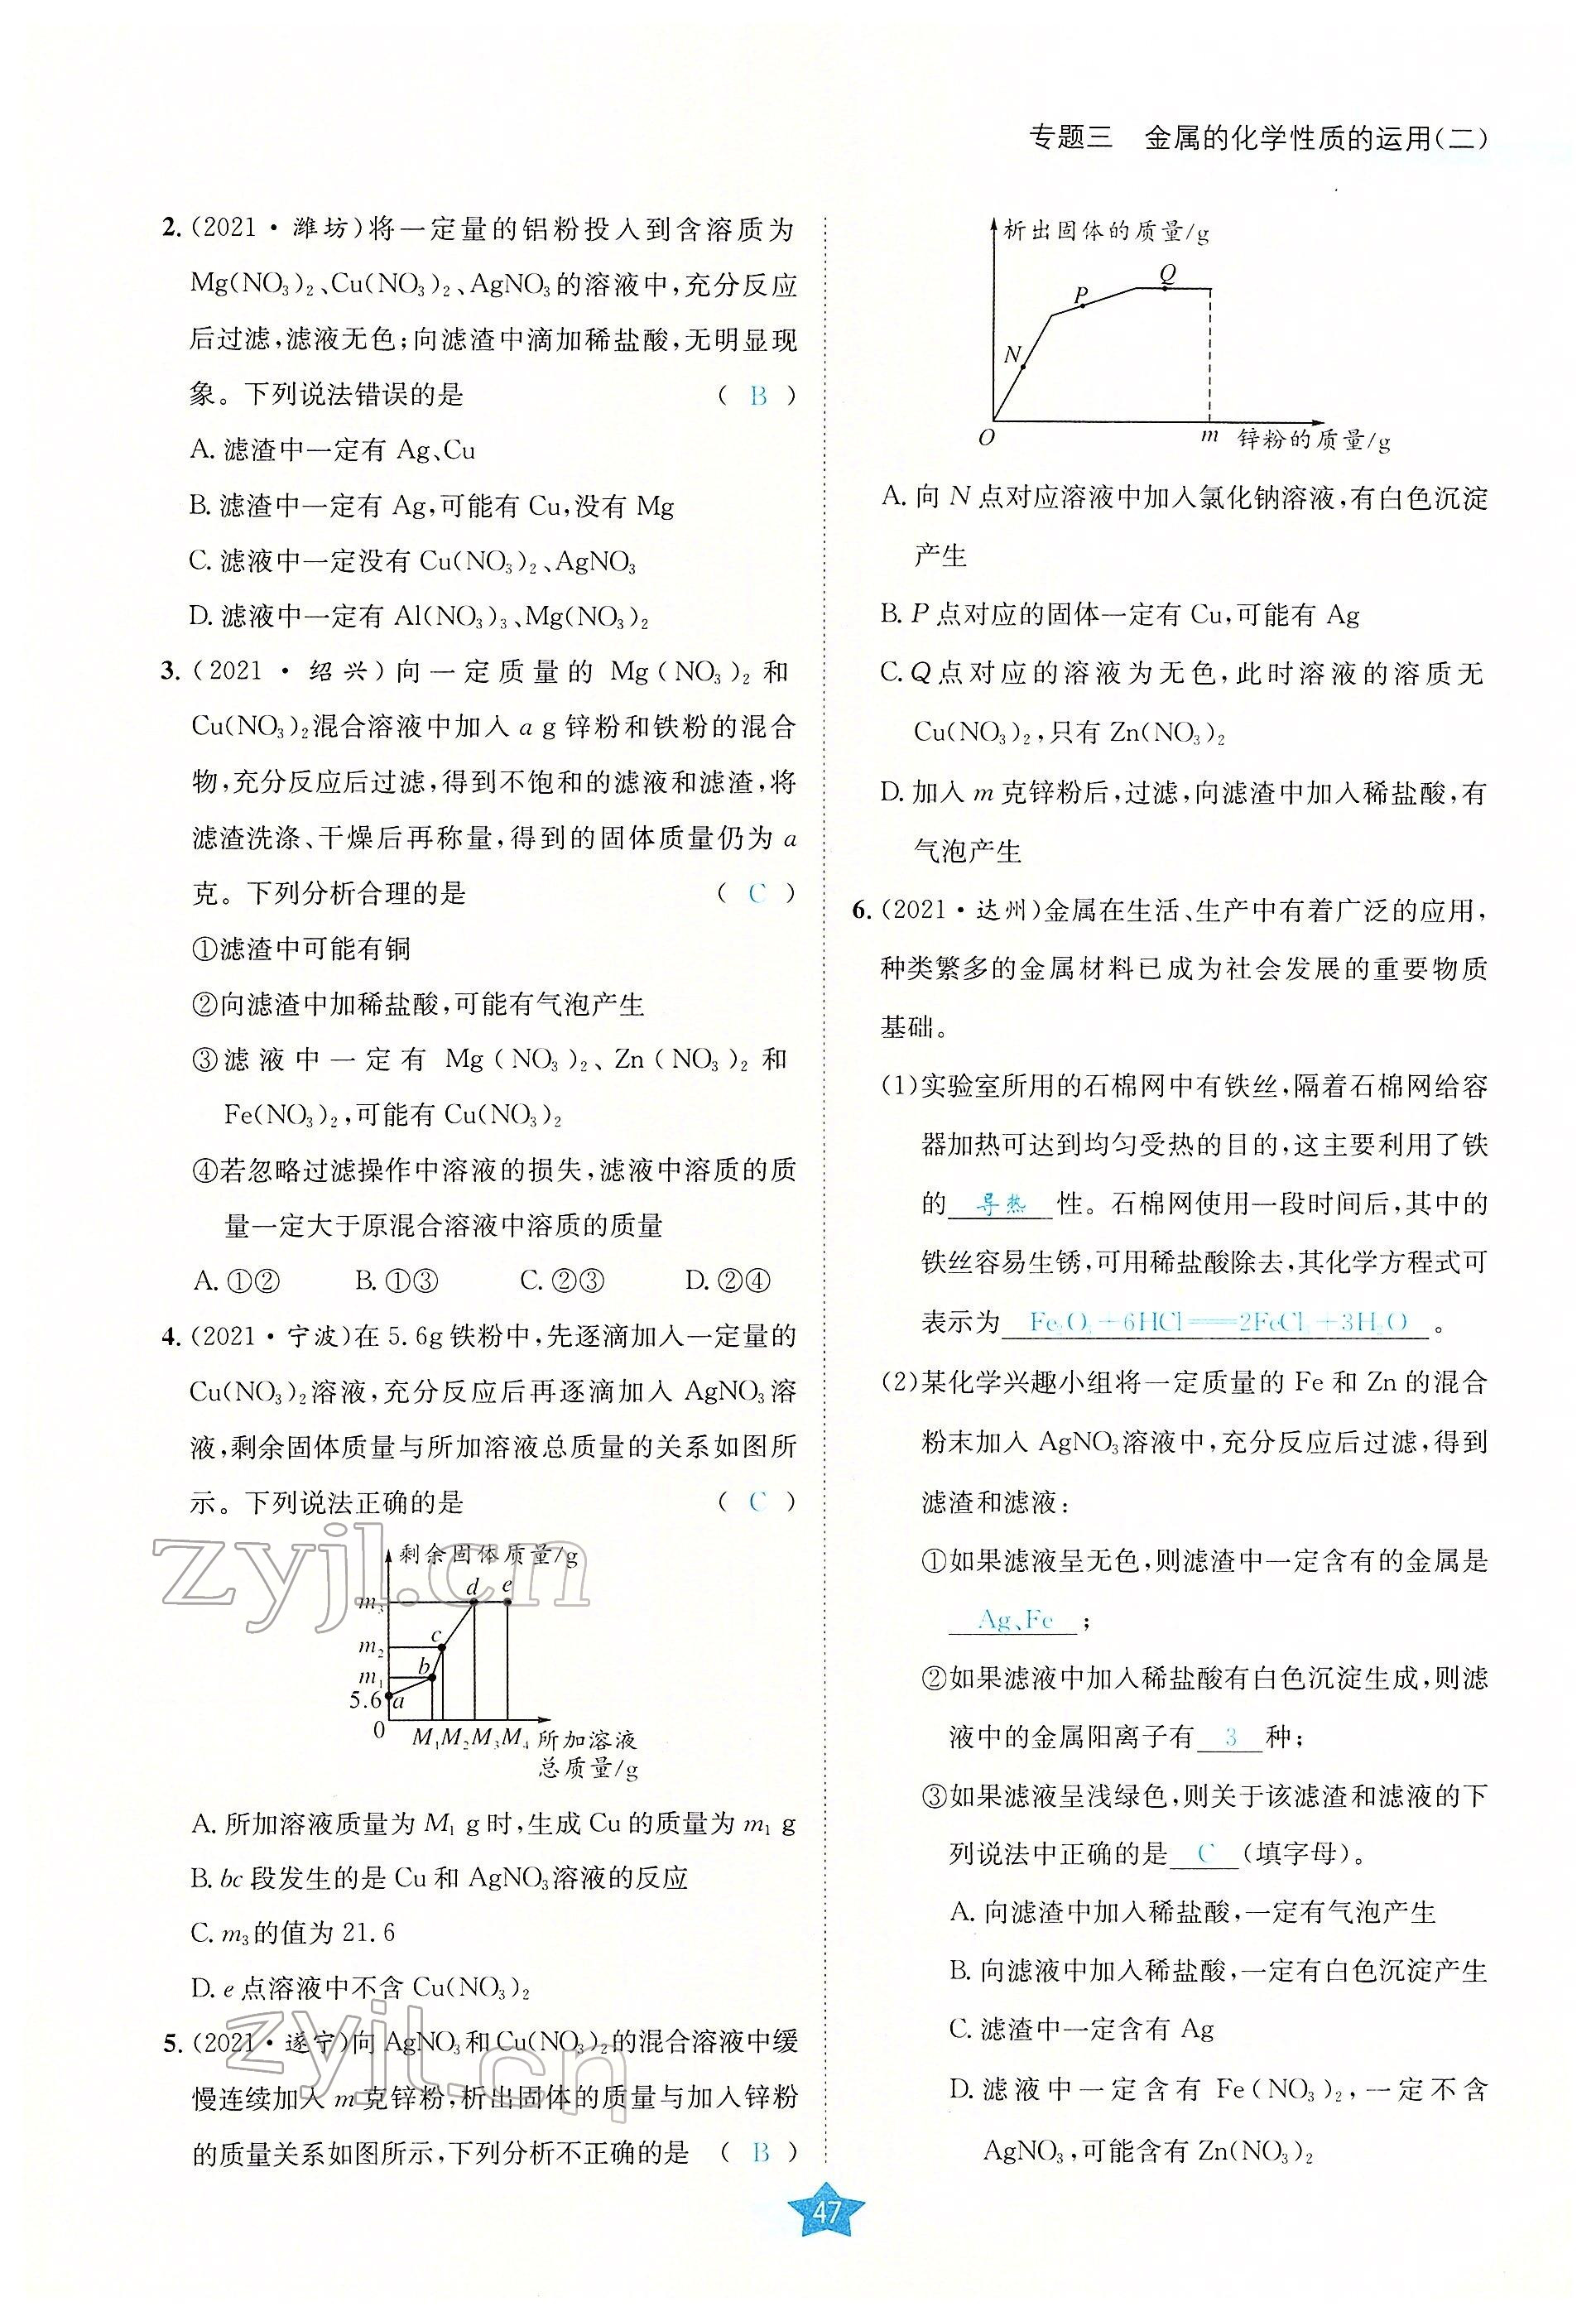 专题三　金属的化学性质的运用(二)
2. (2021·潍坊)将一定量的铝粉投入到含溶质为
Mg(NO₃)₂、Cu(NO₃)₂、AgNO₃的溶液中,充分反应
后过滤,滤液无色;向滤渣中滴加稀盐酸,无明显现
象。下列说法错误的是 ( B )
A. 滤渣中一定有 Ag、Cu
B. 滤渣中一定有 Ag,可能有 Cu,没有 Mg
C. 滤液中一定没有 Cu(NO₃)₂、AgNO₃
D. 滤液中一定有 Al(NO₃)₃、Mg(NO₃)₂
3. (2021·绍兴)向一定质量的 Mg(NO₃)₂和
Cu(NO₃)₂混合溶液中加入 a g 锌粉和铁粉的混合
物,充分反应后过滤,得到不饱和的滤液和滤渣,将
滤渣洗涤、干燥后再称量,得到的固体质量仍为 a
克。下列分析合理的是 ( C )
①滤渣中可能有铜
②向滤渣中加稀盐酸,可能有气泡产生
③滤液中一定有 Mg(NO₃)₂、Zn(NO₃)₂和
Fe(NO₃)₂,可能有 Cu(NO₃)₂
④若忽略过滤操作中溶液的损失,滤液中溶质的质
量一定大于原混合溶液中溶质的质量
A. ①② B. ①③ C. ②③ D. ②④
4. (2021·宁波)在 5.6g 铁粉中,先逐滴加入一定量的
Cu(NO₃)₂溶液,充分反应后再逐滴加入 AgNO₃溶
液,剩余固体质量与所加溶液总质量的关系如图所
示。下列说法正确的是 ( C )
剩余固体质量/g
d e
m₃
c
m₂
b
m₁
5.6 a
0 M₁ M₂ M₃ M₄ 所加溶液
总质量/g
A. 所加溶液质量为 M₁ g 时,生成 Cu 的质量为 m₁ g
B. bc 段发生的是 Cu 和 AgNO₃溶液的反应
C. m₃的值为 21.6
D. e 点溶液中不含 Cu(NO₃)₂
5. (2021·遂宁)向 AgNO₃和Cu(NO₃)₂的混合溶液中缓
慢连续加入 m 克锌粉,析出固体的质量与加入锌粉
的质量关系如图所示,下列分析不正确的是 ( B )
析出固体的质量/g
Q
P
N
O m 锌粉的质量/g
A. 向 N 点对应溶液中加入氯化钠溶液,有白色沉淀
产生
B. P 点对应的固体一定有 Cu,可能有 Ag
C. Q 点对应的溶液为无色,此时溶液的溶质无
Cu(NO₃)₂,只有 Zn(NO₃)₂
D. 加入 m 克锌粉后,过滤,向滤渣中加入稀盐酸,有
气泡产生
6. (2021·达州)金属在生活、生产中有着广泛的应用,
种类繁多的金属材料已成为社会发展的重要物质
基础。
(1)实验室所用的石棉网中有铁丝,隔着石棉网给容
器加热可达到均匀受热的目的,这主要利用了铁
的 导热 性。石棉网使用一段时间后,其中的
铁丝容易生锈,可用稀盐酸除去,其化学方程式可
表示为 Fe₂O₃+6HCl══2FeCl₃+3H₂O 。
(2)某化学兴趣小组将一定质量的 Fe 和 Zn 的混合
粉末加入 AgNO₃溶液中,充分反应后过滤,得到
滤渣和滤液:
①如果滤液呈无色,则滤渣中一定含有的金属是
Ag、Fe ;
②如果滤液中加入稀盐酸有白色沉淀生成,则滤
液中的金属阳离子有 3 种;
③如果滤液呈浅绿色,则关于该滤渣和滤液的下
列说法中正确的是 C (填字母)。
A. 向滤渣中加入稀盐酸,一定有气泡产生
B. 向滤液中加入稀盐酸,一定有白色沉淀产生
C. 滤渣中一定含有 Ag
D. 滤液中一定含有 Fe(NO₃)₂,一定不含
AgNO₃,可能含有 Zn(NO₃)₂
47
zyjl.cn
zyjl.cn